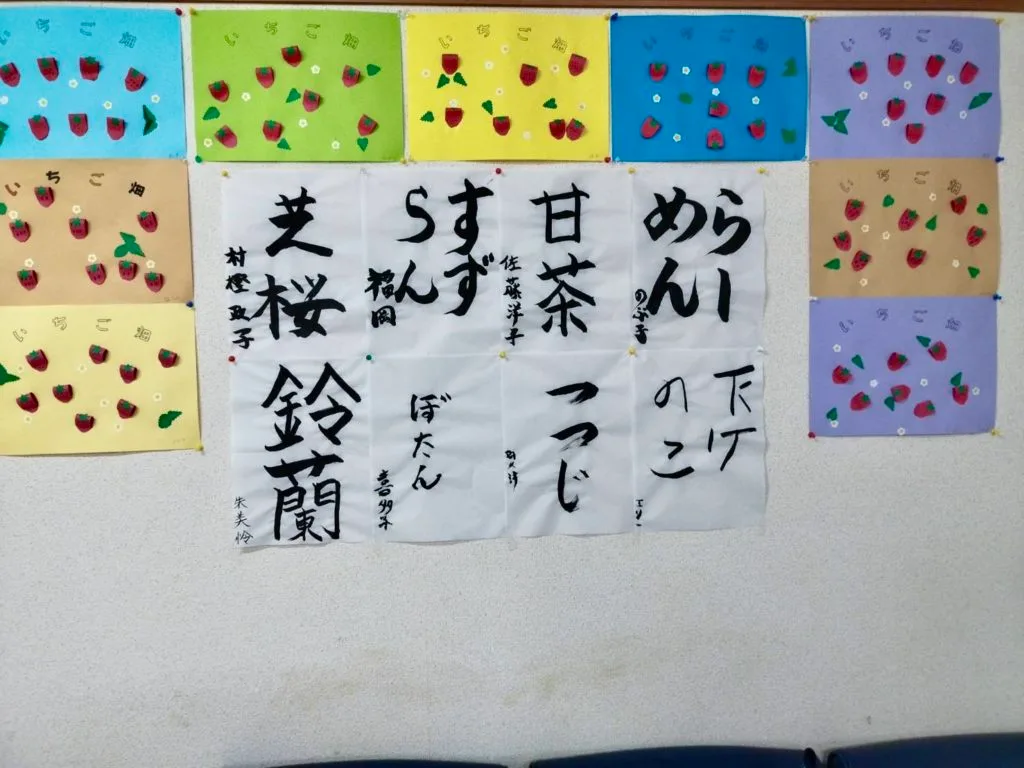 いちご畑
いちご畑
いちご畑
いちご畑
いちご畑
いちご畑
いちご畑
いちご畑
いちご畑
らー
めん
のぶ子
甘茶
佐藤洋子
すず
らん
福岡
芝桜
たけ
のこ
つつじ
ぼたん
鈴蘭
朱美怜